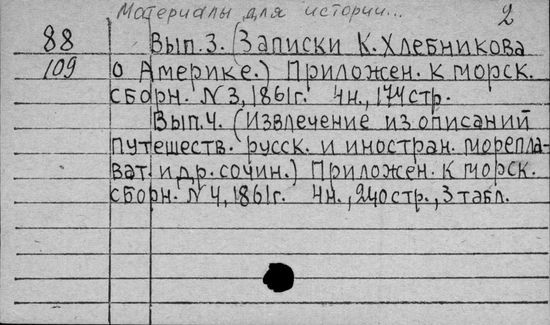 Материалы для истории... 2
88 Вып. 3. (Записки К. Хлебникова
109 о Америке.) Приложен. к морск.
сборн. № 3, 1861г. 4н., 174 стр.
Вып. 4. (Извлечение из описаний
путешеств. русск. и иностран. морепла-
ват. и др. сочин.) Приложен. к морск.
сборн. № 4, 1861г. 4н., 240 стр., 3 табл.